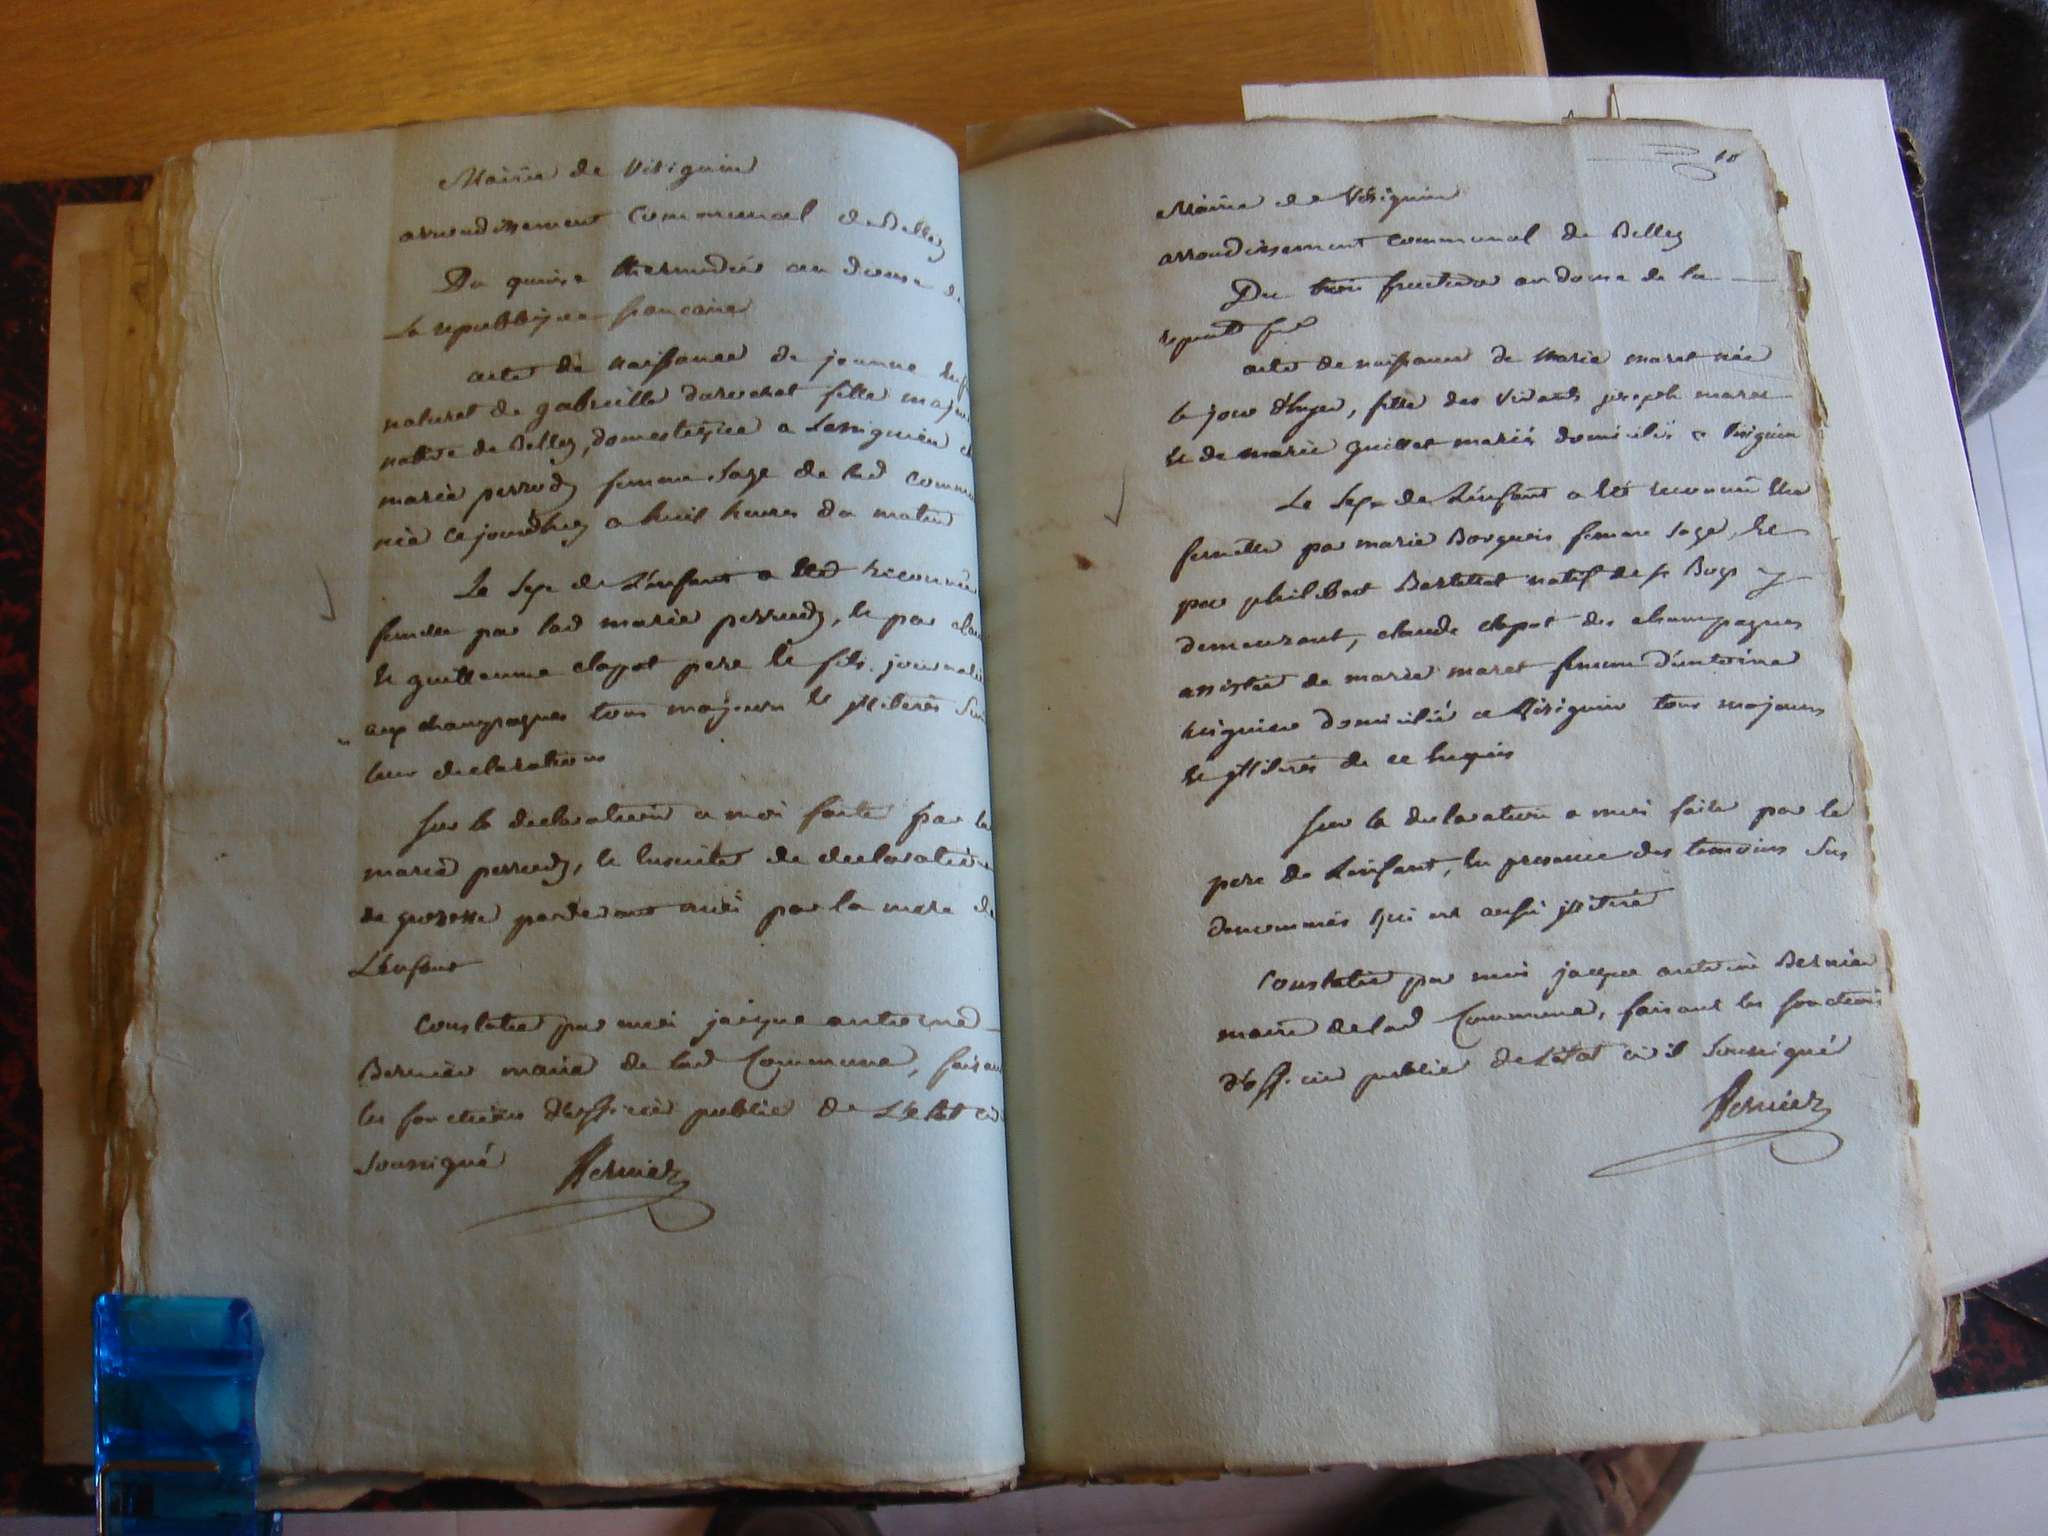 Mairie de Virignin
arrondissement Communal de Belley
Du quinze thermidor an douze de
La republique francaise
acte de naissance de jeanne
naturel de gabrielle darochat fille majeure
native de Belley, domestique a
marie perrody femme sage de lad commune
née ce jourdhuy a huit heures du matin
Le sexe de L'enfant a été reconnu
femelle par lad marie perrody, et par
et guillaume clapot pere et fils journaliers
aux champagnes tous majeurs et illiterés
leur declaration
sur la declaration a moi faite par la
marie perrody, et ensuite de declaration
de grossesse pardevant moi par la mere de
L'enfant
Constaté par moi jacque antoine
Bernier maire de lad Commune, faisant
les fonctions d'officier public de L'etat
soussigné Bernier
10
Mairie de Virignin
arrondissement communal de Belley
Du trois fructidor an douze de la
republ fse
acte de naissance de Marie maret née
le jour d'hyer, fille des vivants joseph maret
et de marie guillet mariés domiciliés a Virignin
Le sexe de L'enfant a été reconnu être
femelle par marie Borgeois femme sage, et
par philibert Berthet natif de st Bois y
demeurant, claude clapot des champagnes
assisté de marie maret femme d'antoine
domicilié a Virignin tous majeurs
et illiterés de ce requis
sur la declaration a moi faite par le
pere de L'enfant, en presence des temoins sus
denommés qui est aussi illiteré
Constaté par moi jacque antoine Bernier
maire de lad Commune, faisant les fonctions
d'officier public de L'etat civil soussigné
Bernier